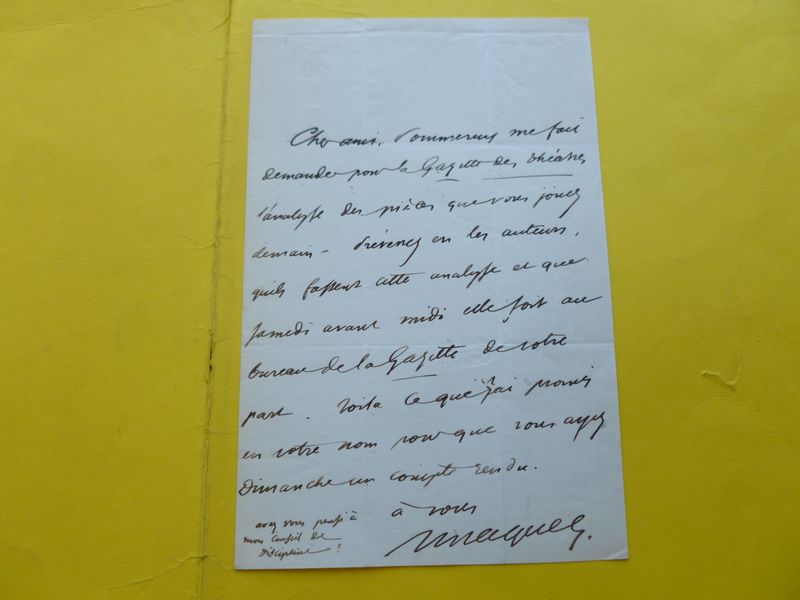 Cher ami, Pommereux me fait
demander pour la Gazette des théatres
l'analyse des pièces que vous jouez
demain - Prévenez en les auteurs,
quils fassent cette analyse et que
samedi avant midi elle soit au
bureau de la Gazette de votre
part. Voila ce que j'ai promis
en votre nom pour que vous ayez
Dimanche un compte rendu.
à vous
avez vous pensé à
mon conseil de
Discipline ?